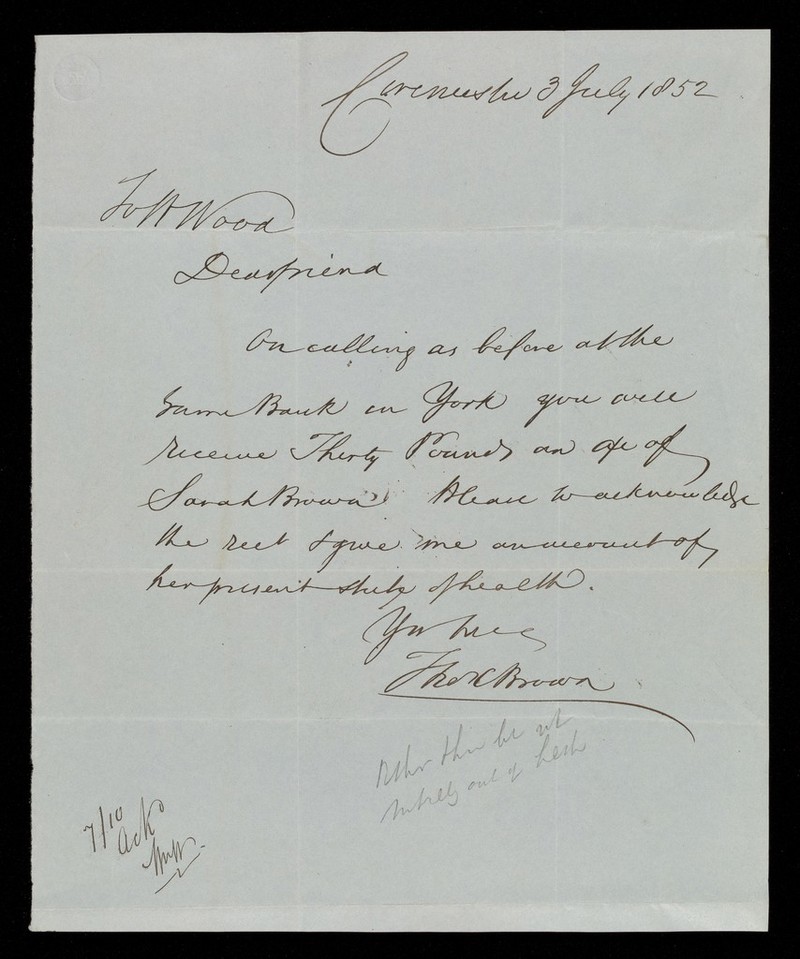 Cirencester 3 July 1852
To H Wood
Dear friend
On calling as before at the
same Bank in York you will
receive Thirty Pounds on a/c of
Sarah Brown Please to acknowledge
the rect & give me an account of
her present state of health.
Yrs truly
Thos Brown
out of health
7/10
Ackd